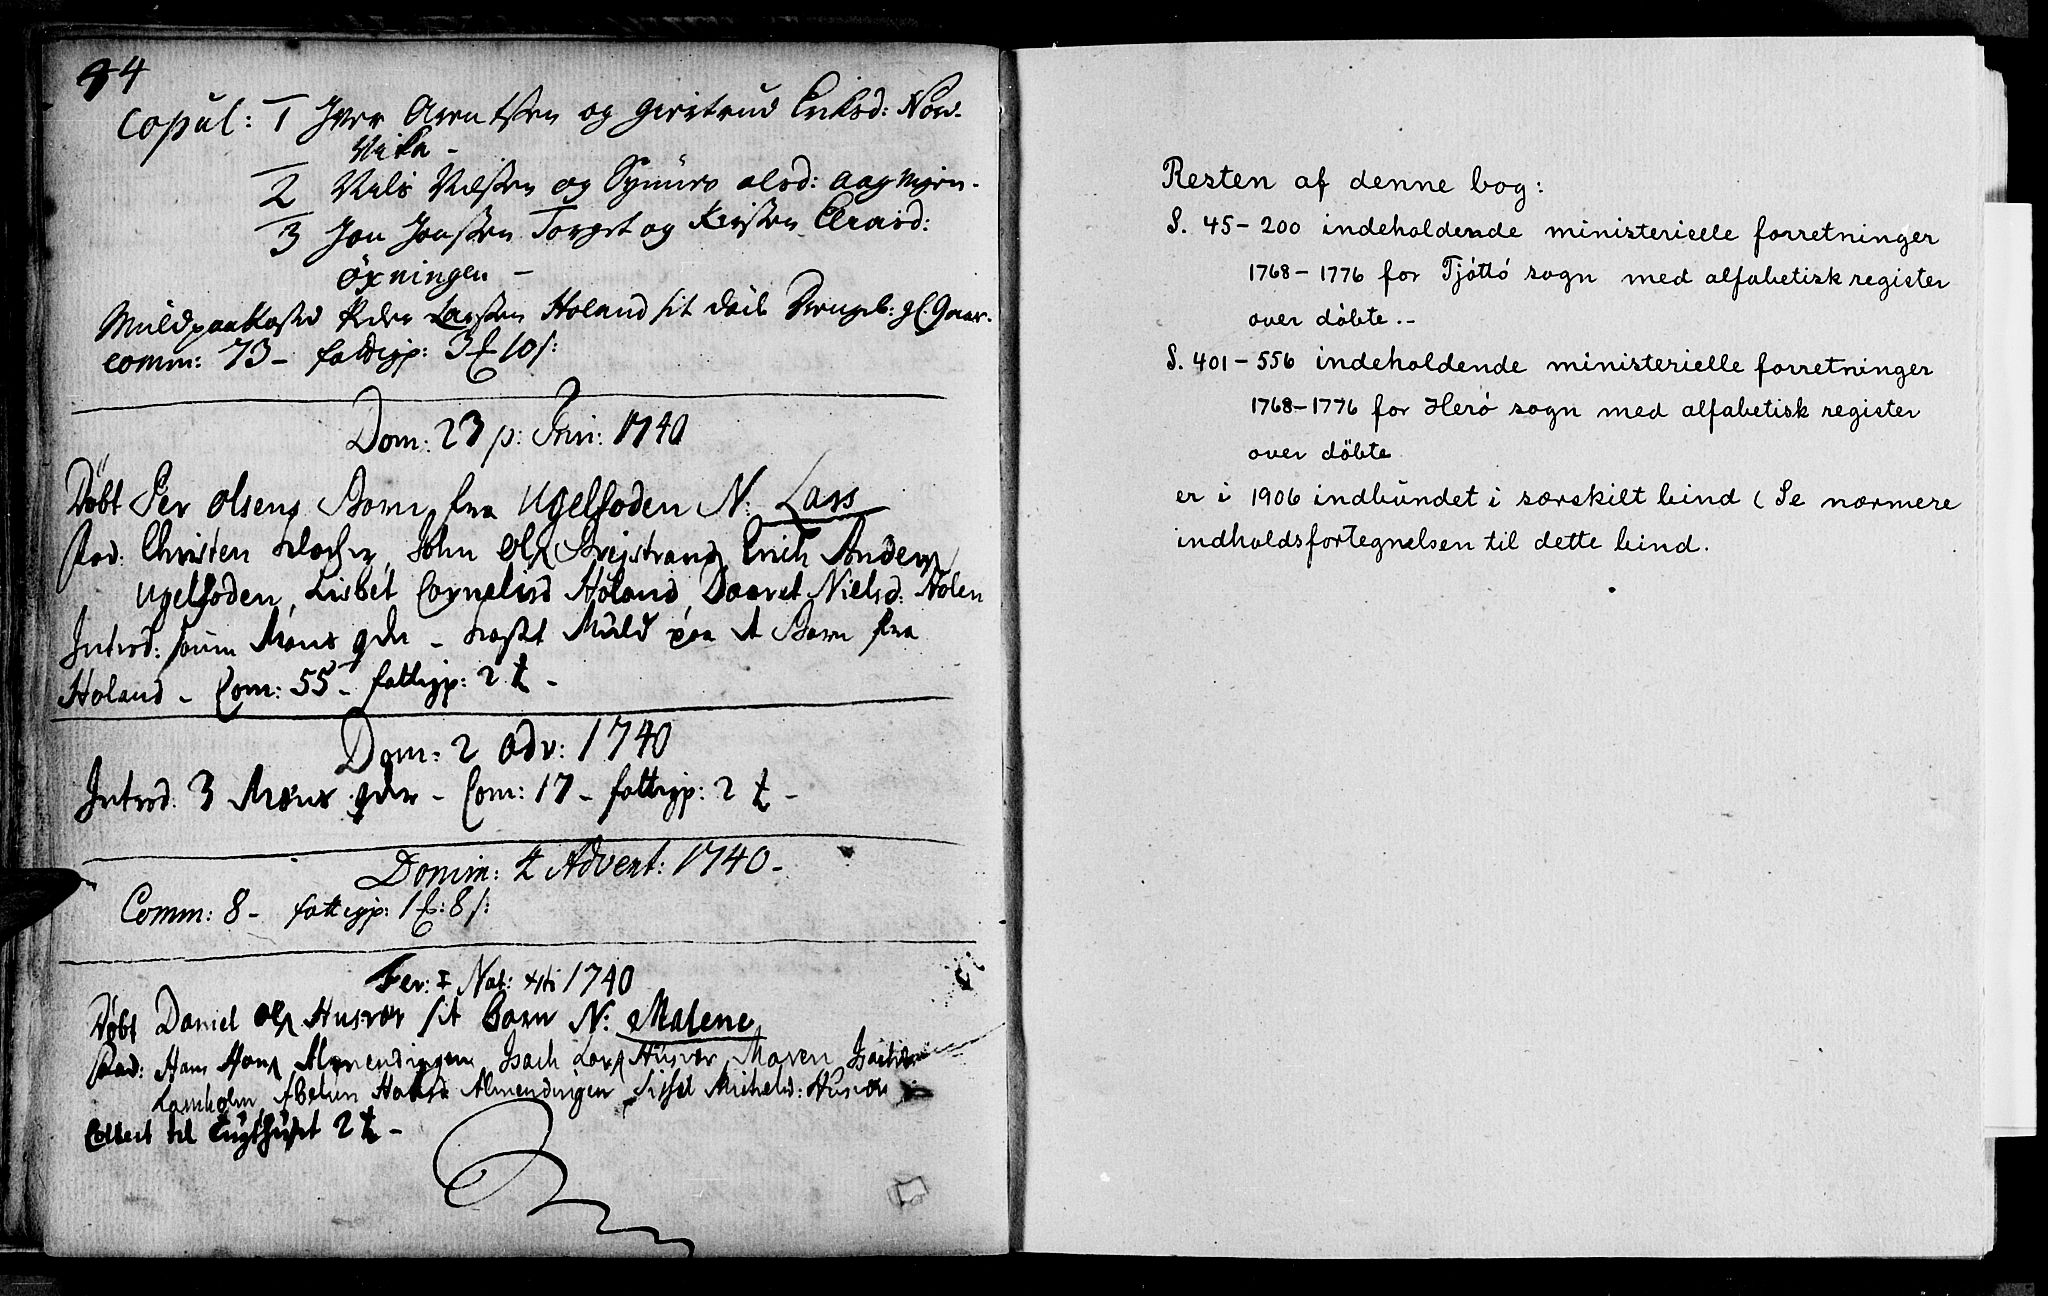 44
Copul: 1 Iver Arentssen og Giertrud Eriksd: Nord-
Vika -
2 Niels Nilssen og Synnøv olsd:
3 Jon Jonssen Torget og Kirsten
öxningen -
Muld paakasted Peder Larssen Holand sit
comm: 73 - fattigp: 3 10 s:
Dom: 23 p: Trin: 1740
Döbt Per olsens Barn fra Ugelsoden N: Lars
Fad: Christen John ols Breistrand, Erich Anders
Ugelsoden, Lisbet Cornelisd Holand, Daaret Nielsd: Holen
Introd: Mons qder - kastet Muld paa et Barn fra
Holand - Com: 55 - fattigp: 2
Dom: 2 Adv: 1740
Introd: 3 qder - Com: 17 - fattigp: 2
Domin: 4 Advent: 1740 -
Comm: 8 - fattigp: 1 8 s:
Fer: I Nat: xsti 1740
Döbt Daniel ols Husvær sit Barn N: Malene
Fad: Hans Hans Almendingen Isach Lars Husvær, Maren
Lamholm, Abelun Almendingen Sissel Michelsd: Husvær
Collect til Tugthuset 2 -
Resten af denne bog:
S. 45 – 200 indeholdende ministerielle forretninger
1768 – 1776 for Tjöttö sogn med alfabetisk register
over döbte. –
S. 401 – 556 indeholdende ministerielle forretninger
1768 – 1776 for Herö sogn med alfabetisk register
over döbte
er i 1906 indbundet i særskilt bind (Se nærmere
indholdsfortegnelsen til dette bind.